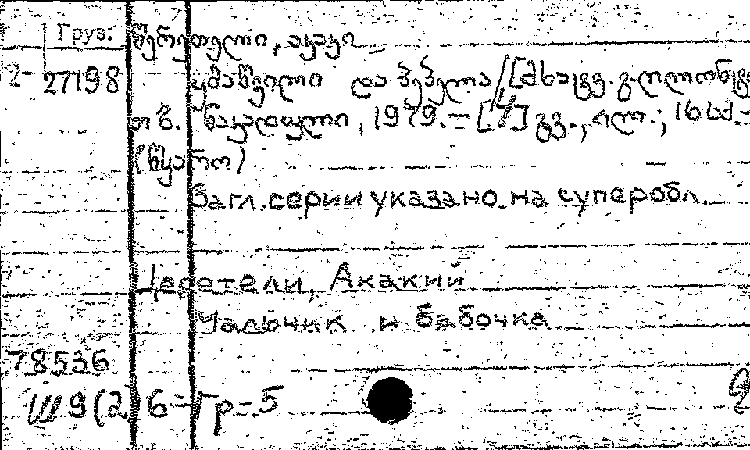 Груз. წერეთელი, აკაკი
2-27198 ყმაწვილი და პეპელა/[მხატვ. გ.
თბ. ნაკადული, 1979.-[4] გვ., ილ.; 16 სმ.-
(წყარო)
Загл. серии указано на суперобл.
Церетели, Акакий
Мальчик и бабочка
78536
Ш 9(2)6=Гр=5